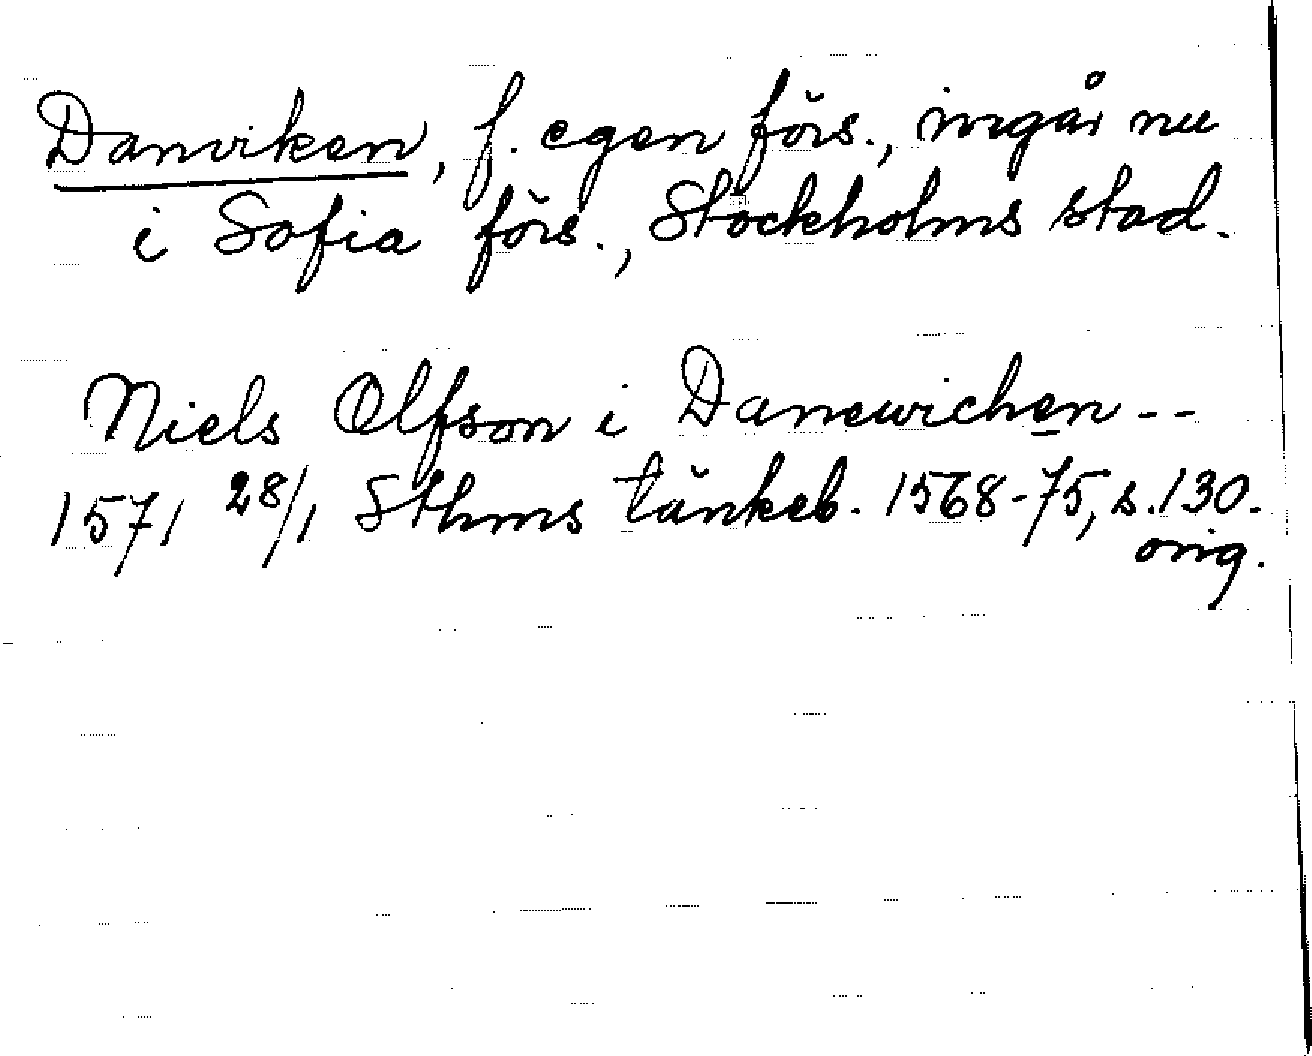 Danviken, f. egen förs., ingår nu
i Sofia förs., Stockholms stad.
Niels Olfson i Danewichen--
1571 28/1 Sthms tänkeb. 1568-75, s. 130.
orig.